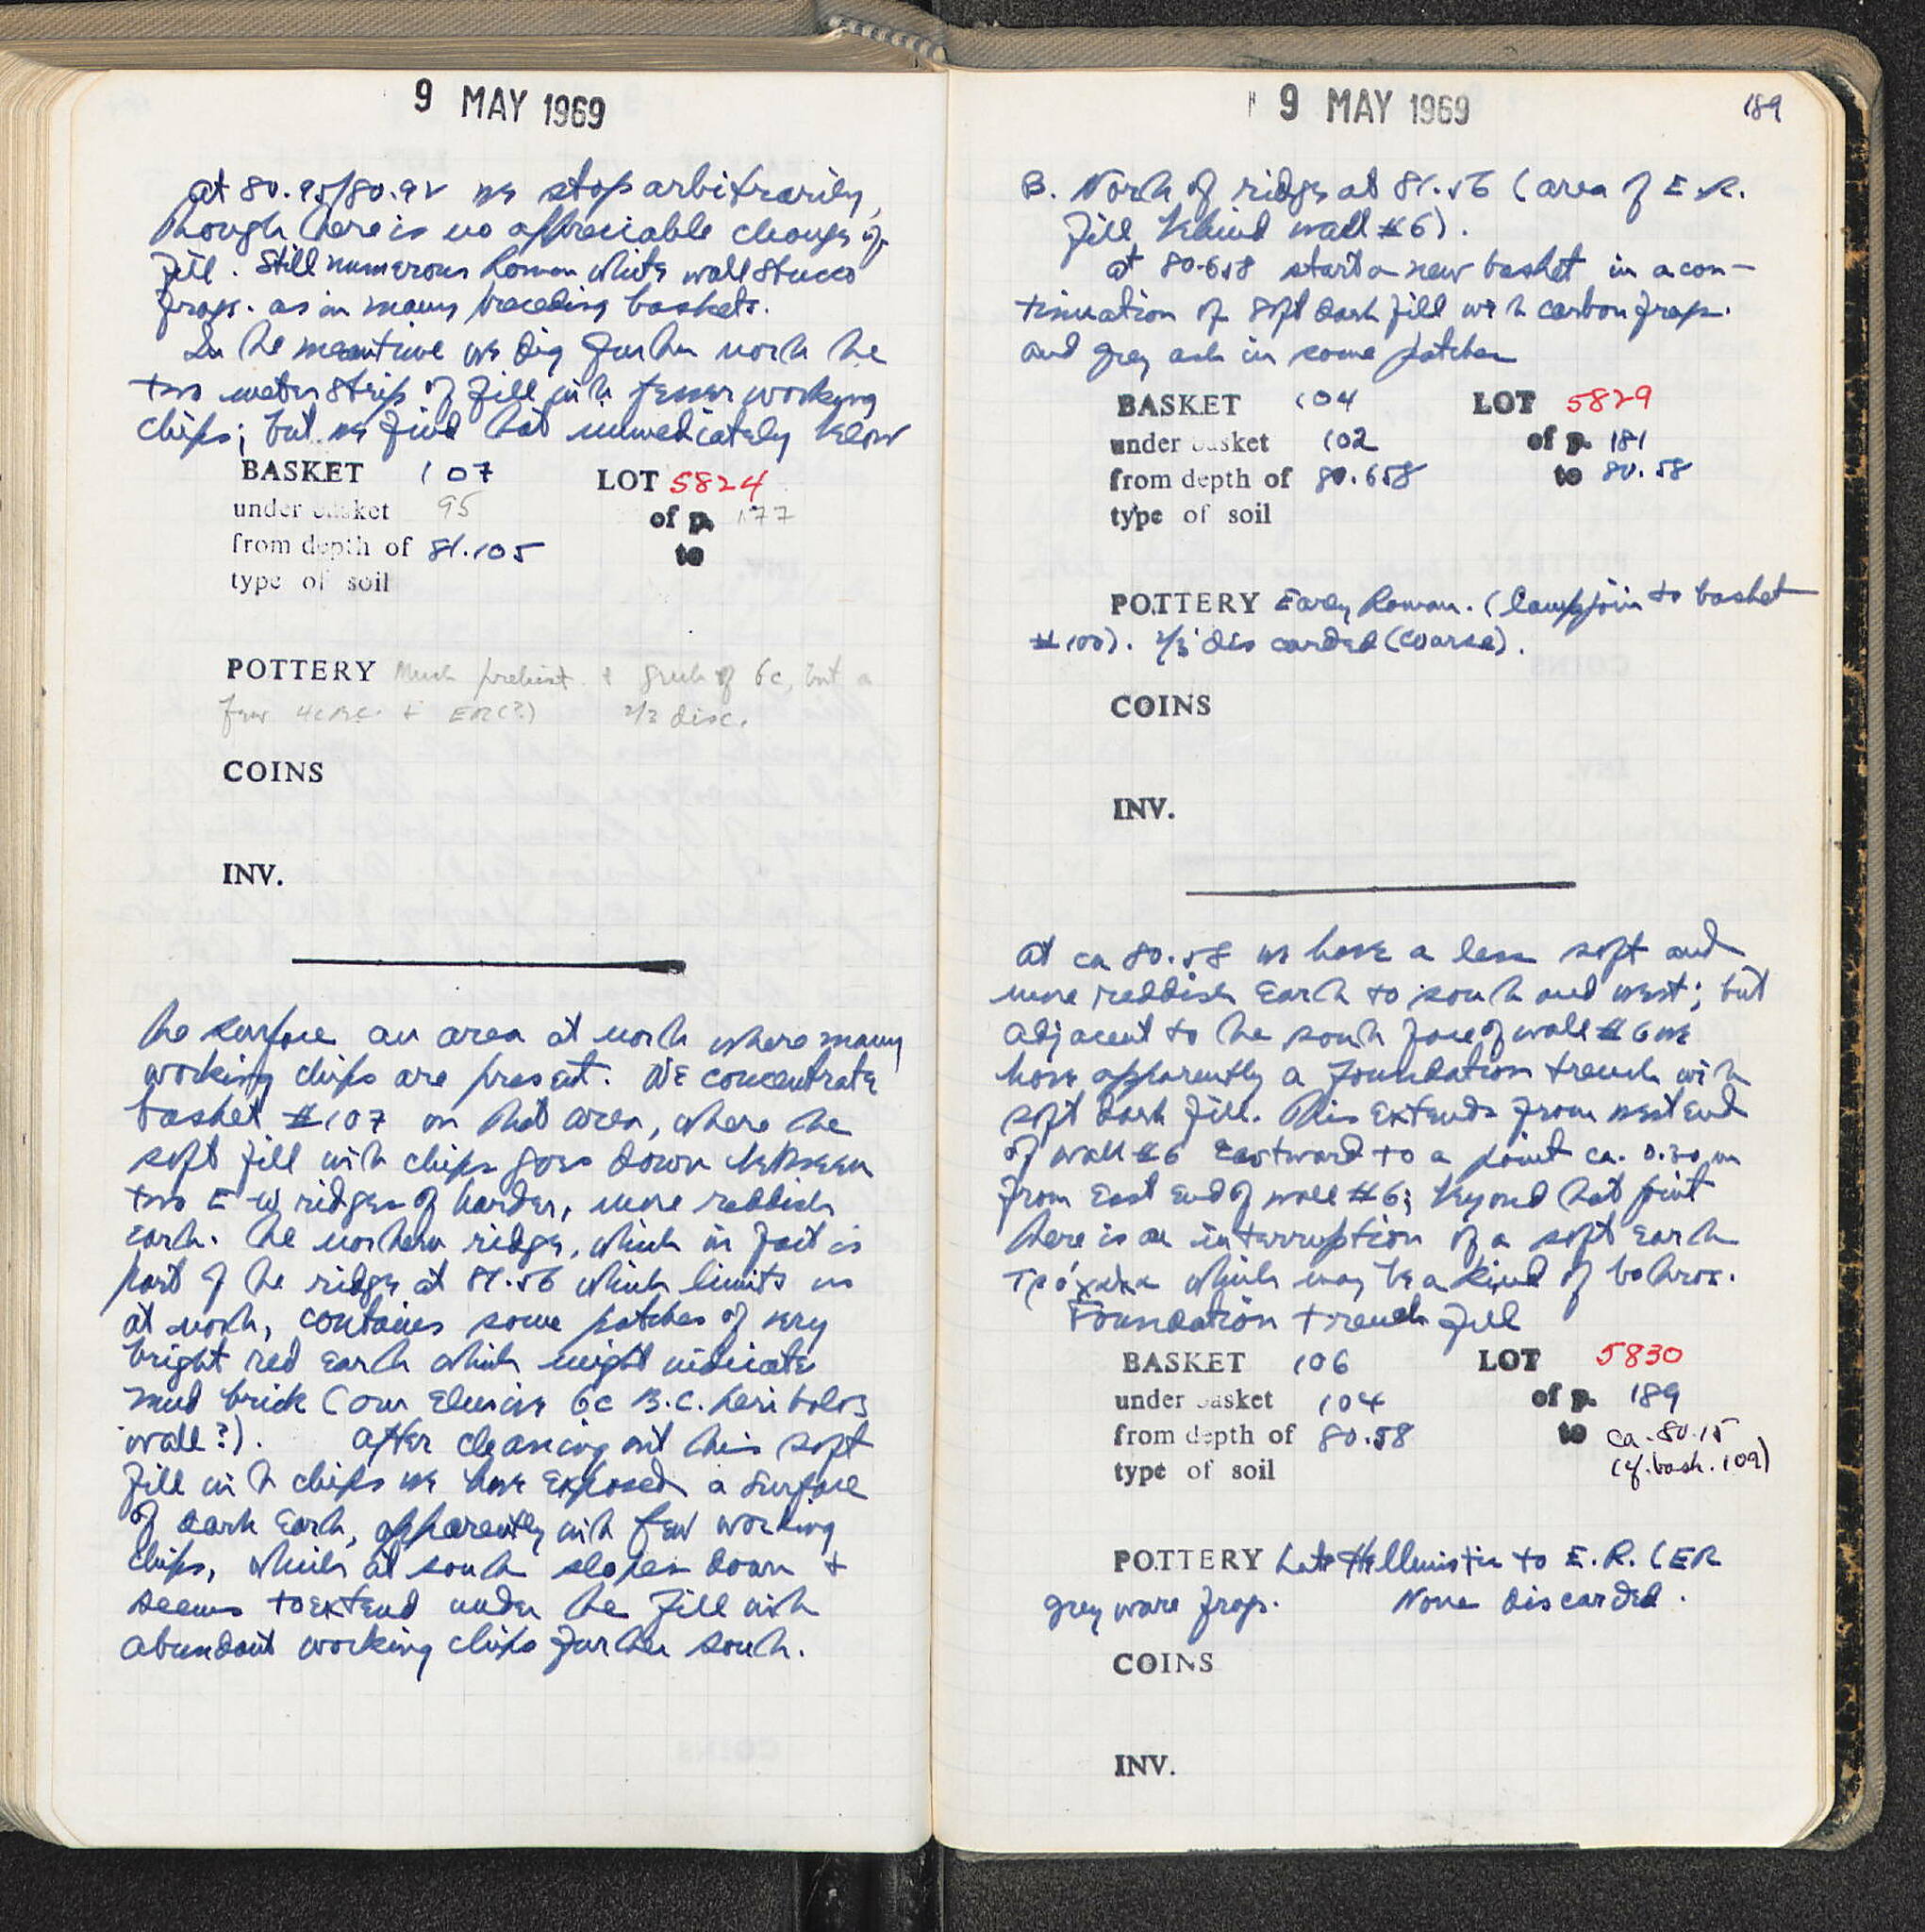 9 MAY 1969
at 80.95/80.92 we stop arbitrarily,
though there is no appreciable change of
fill. Still numerous Roman white wall stucco
frags. as in many preceding baskets.
In the meantime we dig further north the
two meter strip of fill with fewer working
chips; but we find that immediately below
BASKET 107 LOT 5824
under basket 95 of p. 177
from depth of 81.105 to
type of soil
POTTERY Much prehist. +
 of 6c, but a
few 4c BC + ER(?) 2/3 disc.
COINS
INV.
the surface an area at north where many
working chips are present. We concentrate
basket #107 on that area, where the
soft fill with chips goes down between
two E-W ridges of harder, more reddish
earth. The northern ridge, which in fact is
part of the ridge at 81.56 which limits us
at north, contains some patches of very
bright red earth which might indicate
mud brick (our elusive 6c B.C. peribolos
wall?). After cleaning out this soft
fill with chips we have exposed a surface
of dark earth, apparently with few working
chips, which at south slopes down +
seems to extend under the fill with
abundant working chips further south.
9 MAY 1969 189
B. North of ridge at 81.56 (area of E.R.
fill behind wall #6).
at 80.658 start a new basket in a con-
tinuation of soft dark fill with carbon frags.
and grey ash in some patches
BASKET 104 LOT 5829
under basket 102 of p. 181
from depth of 80.658 to 80.58
type of soil
POTTERY Early Roman. (lamp join to basket
#100). 2/3 discarded (coarse).
COINS
INV.
at ca 80.58 we have a less soft and
more reddish earth to south and west; but
adjacent to the south face of wall #6 we
have apparently a foundation trench with
soft dark fill. This extends from west end
of wall #6 eastward to a point ca. 0.30 m
from east end of wall #6; beyond that point
there is an interruption of a soft earth
τρόχαλα which may be a kind of bothros.
Foundation trench fill
BASKET 106 LOT 5830
under basket 104 of p. 189
from depth of 80.58 to ca. 80.15
type of soil (cf. bask. 109)
POTTERY Late Hellenistic to E.R. (ER
grey ware frags. None discarded.
COINS
INV.